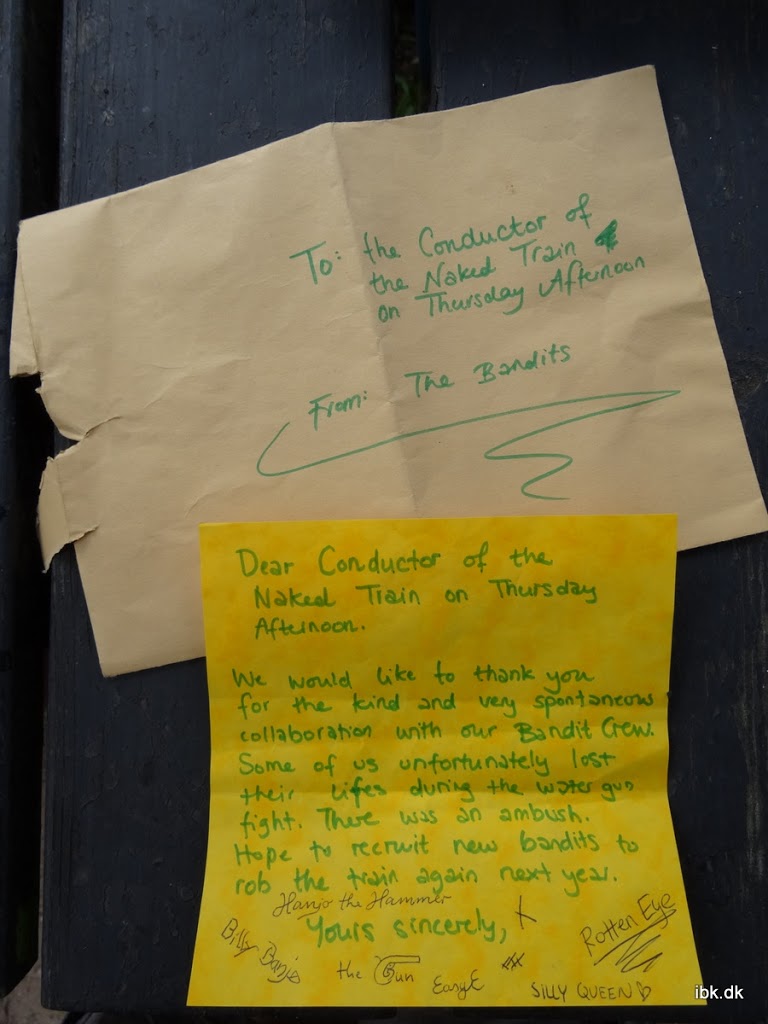 To: the Conductor of
the Naked Train
on Thursday Afternoon
From: The Bandits
Dear Conductor of the
Naked Train on Thursday
Afternoon.
We would like to thank you
for the kind and very spontaneous
collaboration with our Bandit Crew.
Some of us unfortunately lost
their lifes during the water gun
fight. There was an ambush.
Hope to recruit new bandits to
rob the train again next year.
Hanjo the Hammer
Yours sincerely, X
Rotten Eye
Billy Banjo
the Gun
EasyE
SILLY QUEEN♡
ibk.dk